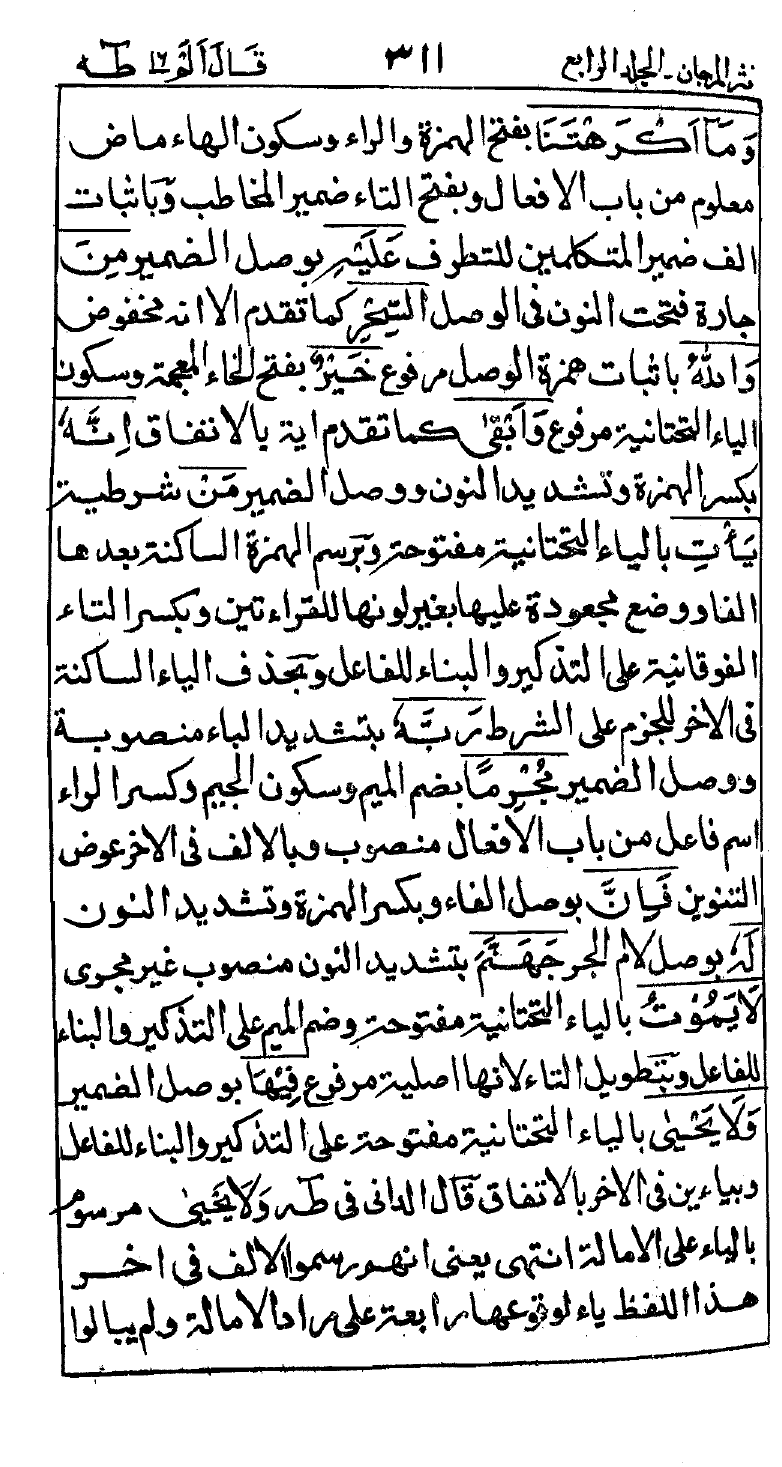 نثر المرجان ـ المجلد الرابع ٣١١ قَالَ اَلَمْ ١٦ طٰهٰ
وَمَآ اَكْرَهْتَنَا بفتح الهمزة والراء وسكون الهاء ماض
معلوم من باب الافعال وبفتح التاء ضمير المخاطب وباثبات
الف ضمير المتكلمين للتطرف عَلَيْهِ بوصل الضمير مِنَ
جارة فتحت النون فى الوصل السِّحْرِ كما تقدم الا انه مخفوض
وَاللّٰهُ باثبات همزة الوصل مرفوع خَيْرٌ بفتح الخاء المعجمة وسكون
الياء التحتانية مرفوع وَاَبْقٰى كما تقدم اية بالاتفاق اِنَّهٗ
بكسر الهمزة وتشديد النون ووصل الضمير مَنْ شرطية
يَأْتِ بالياء التحتانية مفتوحة وبرسم الهمزة الساكنة بعدها
الفا ووضع مجعودة عليها بغير لونها للقراءتين وبكسر التاء
الفوقانية على التذكير والبناء للفاعل وبحذف الياء الساكنة
فى الاخر للجزم على الشرط رَبَّهٗ بتشديد الباء منصوبة
ووصل الضمير مُجْرِمًا بضم الميم وسكون الجيم وكسر الراء
اسم فاعل من باب الافعال منصوب وبالالف فى الاخر عوض
التنوين فَاِنَّ بوصل الفاء وبكسر الهمزة وتشديد النون
لَهٗ بوصل لام الجر جَهَنَّمَ بتشديد النون منصوب غير مجرى
لَا يَمُوْتُ بالياء التحتانية مفتوحة وضم الميم على التذكير والبناء
للفاعل وبتطويل التاء لانها اصلية مرفوع فِيْهَا بوصل الضمير
وَلَا يَحْيٰى بالياء التحتانية مفتوحة على التذكير والبناء للفاعل
وبياءين فى الاخر بالاتفاق قال الدانى فى طٰهٰ وَلَا يَحْيٰى مرسوم
بالياء على الامالة انتهى يعنى انهم رسموا الالف فى اخر
هذا اللفظ ياء لوقوعها رابعة على مراد الامالة ولم يبالوا